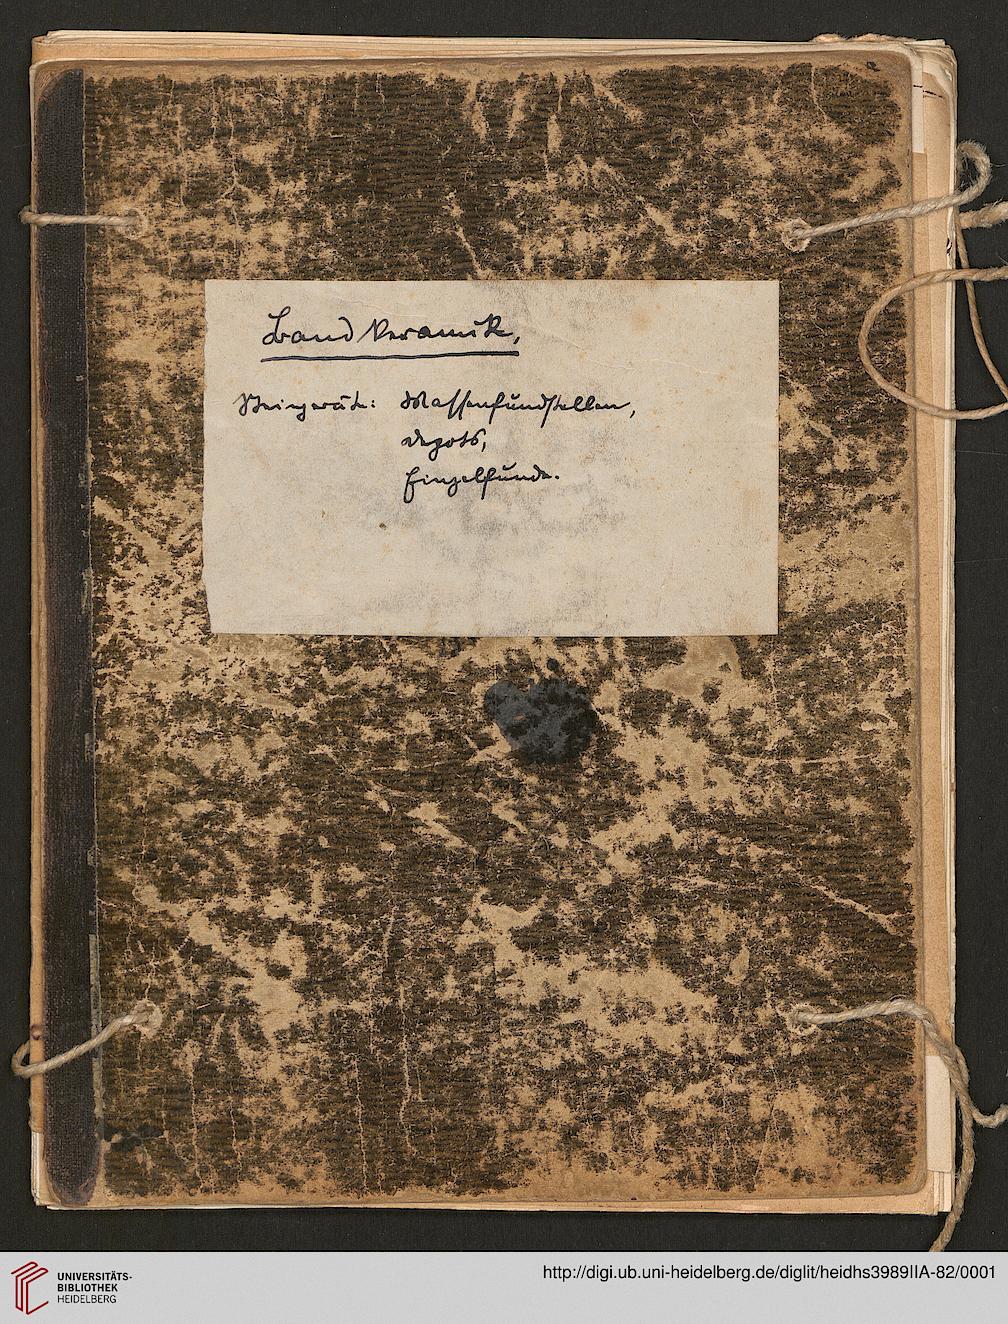 Bandkeramik,
Steingeräte: Massenfundstellen,
Depots,
Einzelfunde.
UNIVERSITÄTS-
BIBLIOTHEK
HEIDELBERG
http://digi.ub.uni-heidelberg.de/diglit/heidhs3989IIA-82/0001